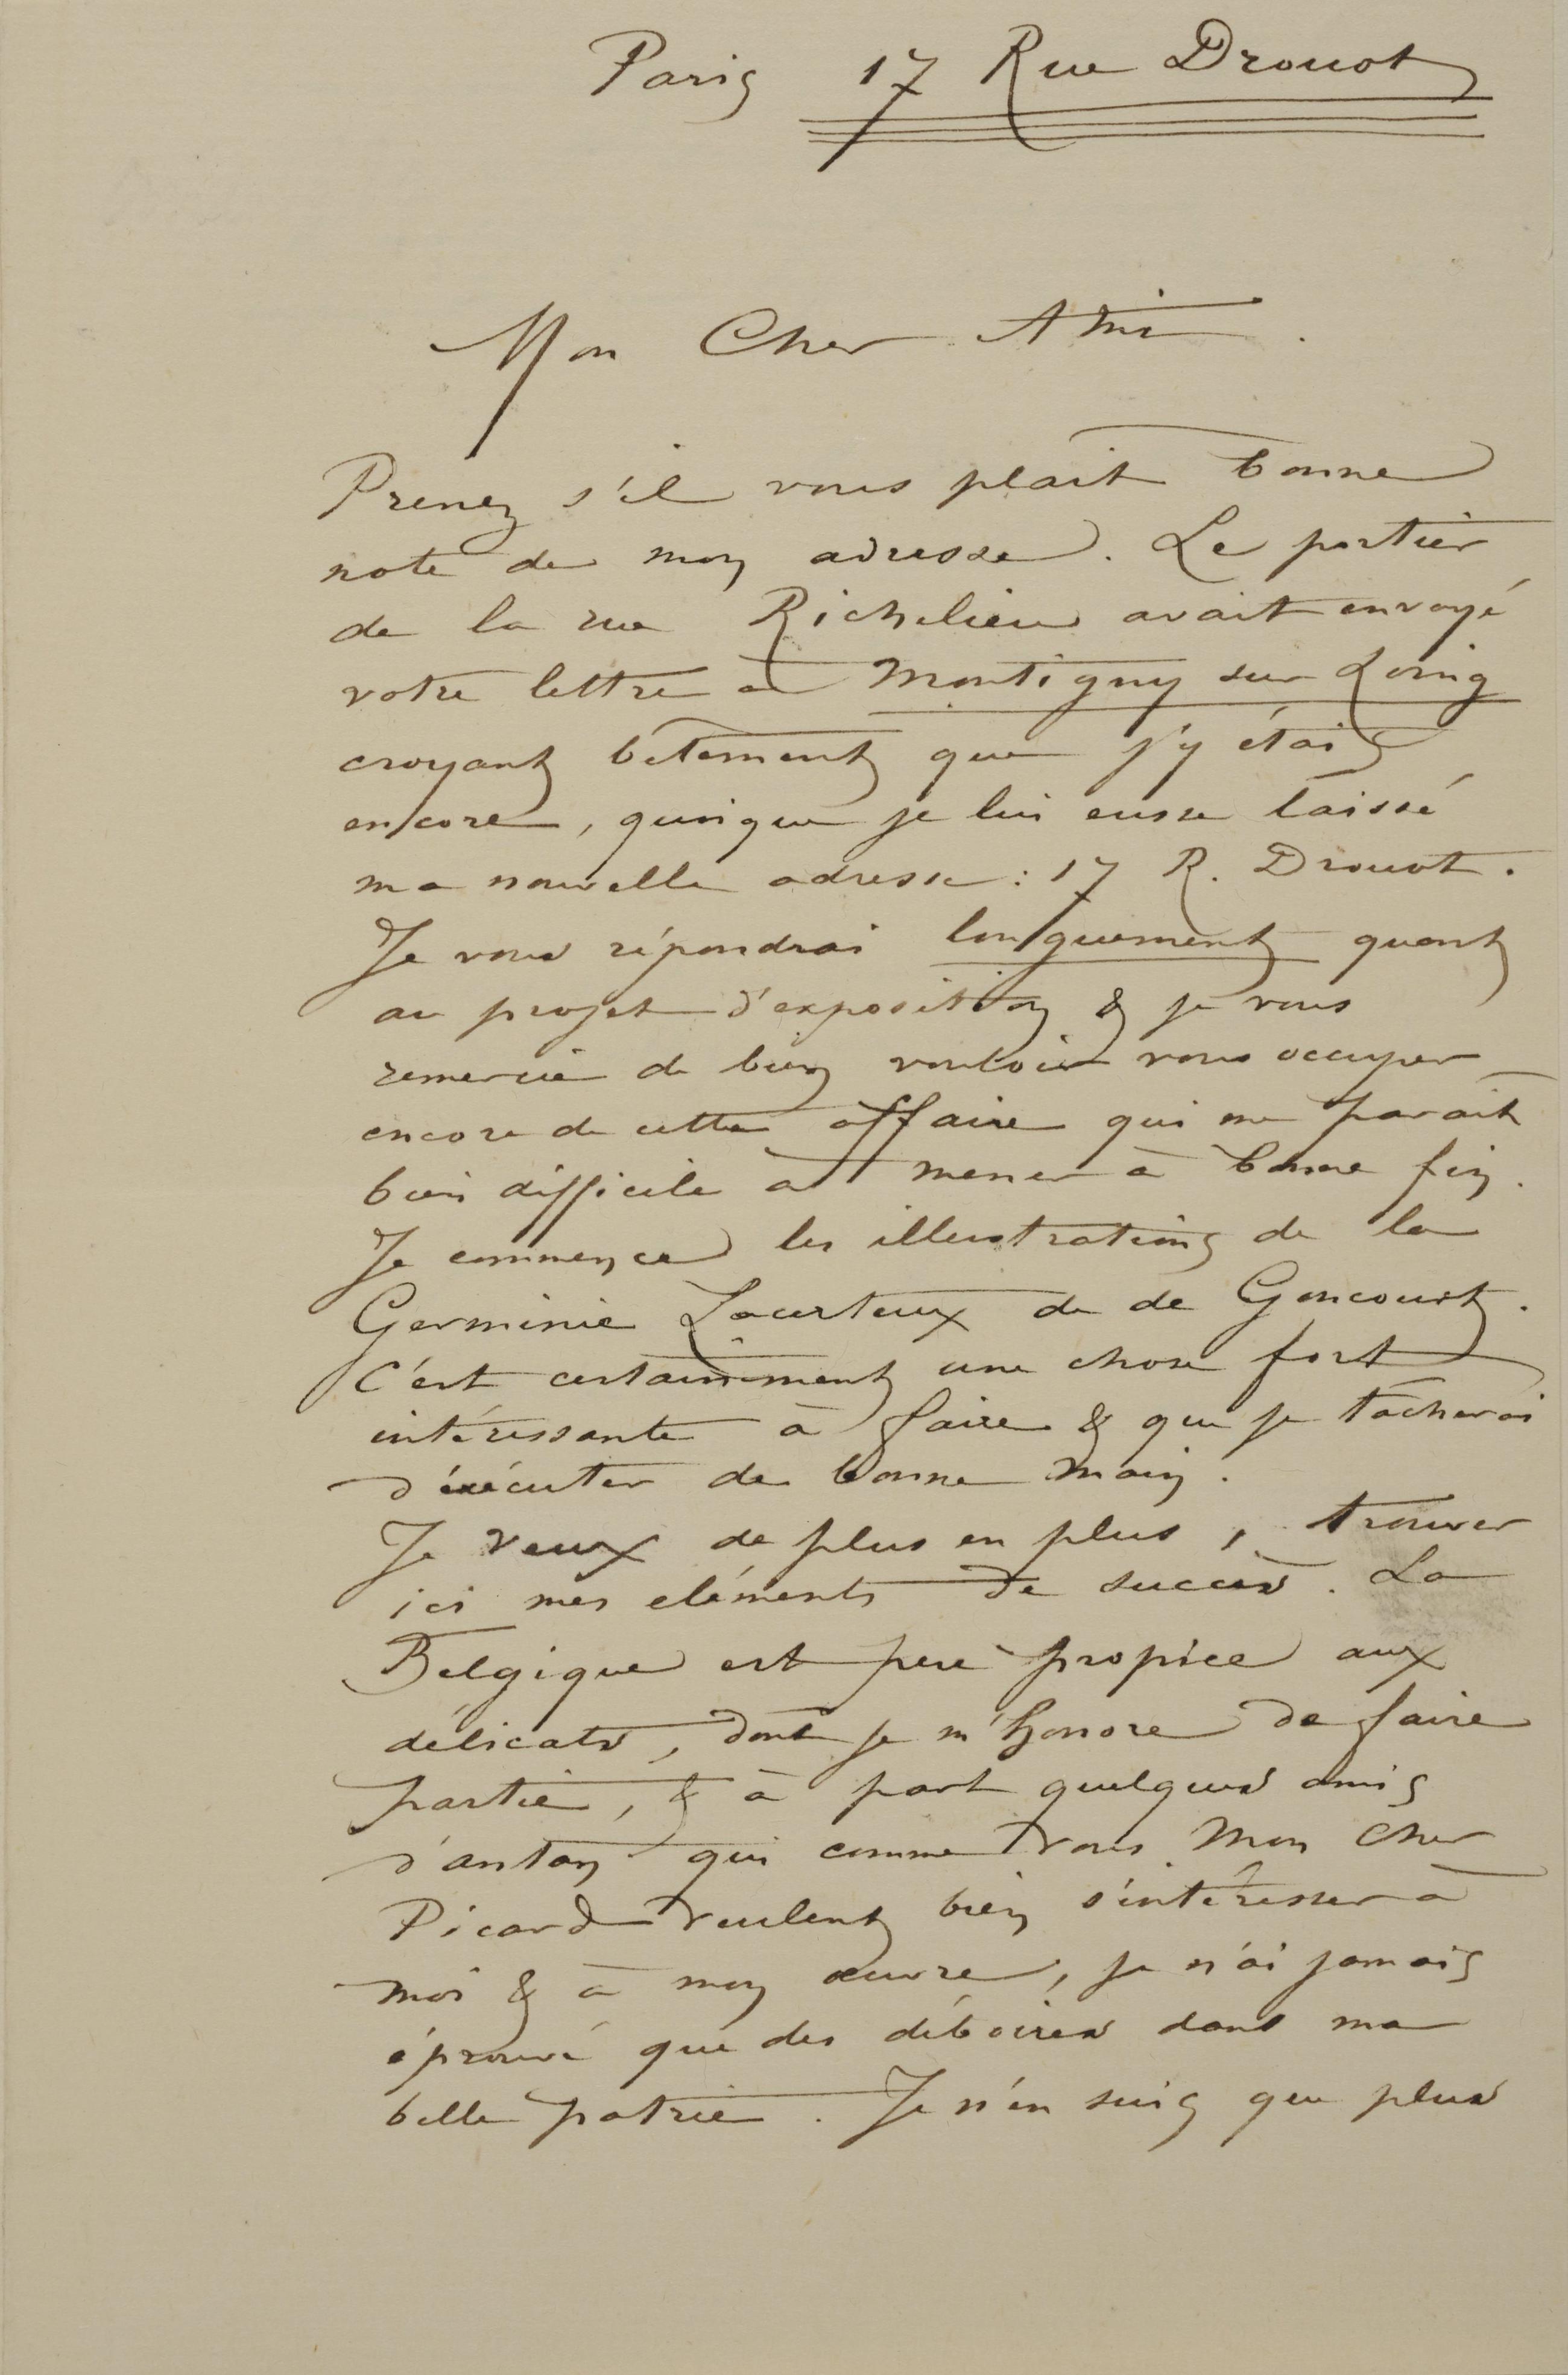 Paris 17 Rue Drouot
Mon Cher Ami.
Prenez s'il vous plait bonne
note de mon adresse. Le portier
de la rue Richelieu avait envoyé
votre lettre à Montigny sur Loing
croyant bêtement que j'y étais
encore, quoique je lui eusse laissé
ma nouvelle adresse : 17 R. Drouot.
Je vous répondrai longuement quant
au projet d'exposition & je vous
remercie de bien vouloir vous occuper
encore de cette affaire qui me parait
bien difficile à mener à bonne fin.
Je commence les illustrations de la
Germinie Lacerteux de de Goncourt.
C'est certainement une chose fort
intéressante à faire & que je tâcherai
d'éxécuter de bonne main.
Je veux de plus en plus, trouver
ici mes eléments de succès. La
Belgique est peu propice aux
délicats, dont je m'honore de faire
partie, & à part quelques amis
d'antan qui comme vous Mon Cher
Picard veulent bien s'intéresser à
moi & à mon œuvre, je n'ai jamais
éprouvé que des déboires dans ma
belle patrie. Je n'en suis que plus